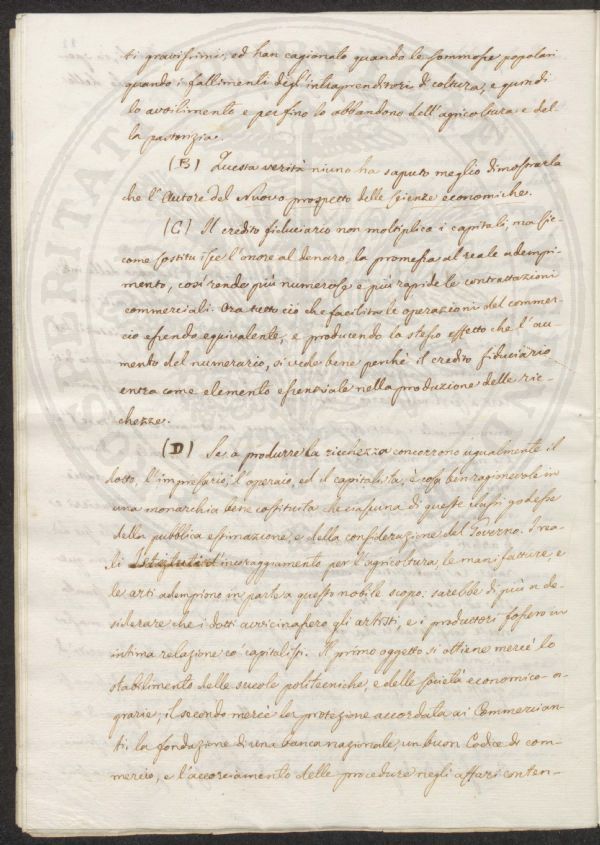 ti gravissimi, ed han cagionato quando le sommosse popolari
quando i fallimenti degl'intraprenditori di coltura, e quindi
lo avvilimento e perfino lo abbandono dell'agricoltura e del
la pastorizia.
(B) Questa verità niuno ha saputo meglio dimostrarla
che l'Autore del Nuovo prospetto delle scienze economiche.
(C) Il credito fiduciario non moltiplica i capitali; ma sic-
come sostituisce l'onore al denaro, la promessa al reale adempi-
mento, così rende più numerose e più rapide le contrattazioni
commerciali. Ora tutto ciò che facilita le operazioni del commer-
cio essendo equivalente, e producendo lo stesso effetto che l'au-
mento del numerario, si vede bene perchè il credito fiduciario
entra come elemento essenziale nella produzione delle ric-
chezze.
(D) Se a produrre la ricchezza concorrono ugualmente il
dotto, l'impresario, l'operaio, ed il capitalista, è cosa ben ragionevole in
una monarchia bene costituita che ciascuna di queste classi godesse
della pubblica estimazione, e della considerazione del Governo. I rea-
li Istituti d'incoraggiamento per l'agricoltura, le manifatture, e
le arti adempiono in parte a questo nobile scopo: sarebbe di più a de-
siderare che i dotti avvicinassero gli artisti, e i produttori fossero in
intima relazione co' capitalisti. Il primo oggetto si ottiene mercè lo
stabilimento delle scuole politecniche, e delle società economico-a-
grarie; il secondo mercè la protezione accordata ai Commercian-
ti, la fondazione di una banca nazionale, un buon Codice di com-
mercio, e l'accorciamento delle procedure negli affari conten-